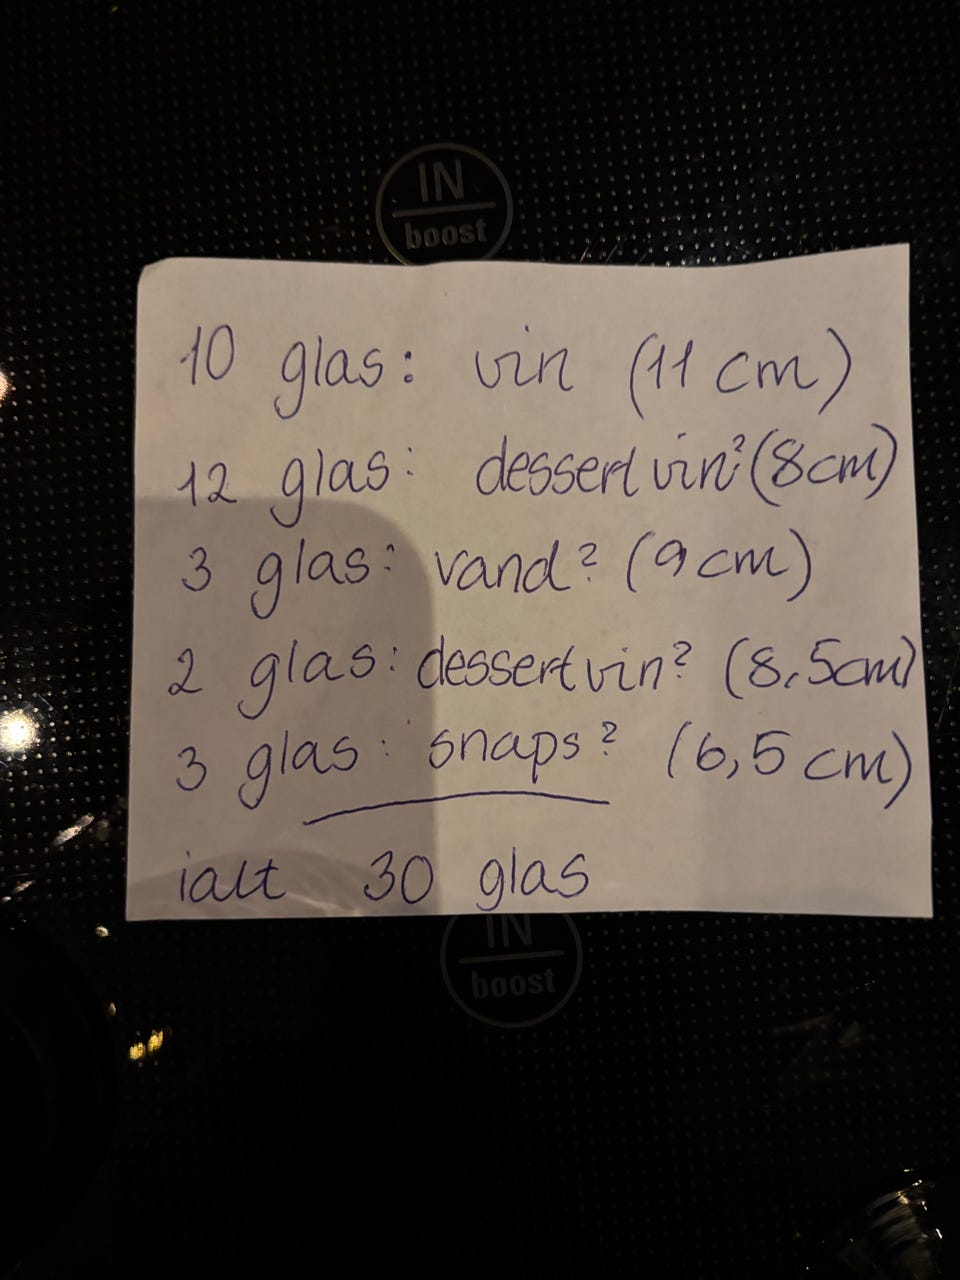 IN
boost
10 glas: vin (11 cm)
12 glas: dessertvin? (8cm)
3 glas: vand? (9cm)
2 glas: dessertvin? (8,5cm)
3 glas: snaps? (6,5 cm)
ialt 30 glas
IN
boost